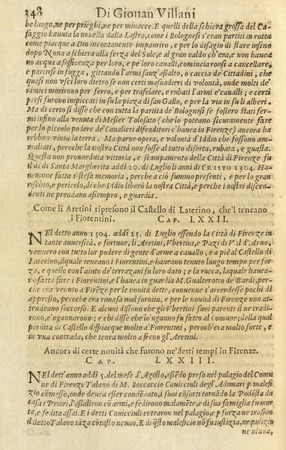 248 Di Giouan Villani
be luogo, ne per prieghi, ne per minacce. E quelli della schiera grossa del Ca-
saggio hauuta la nouella dalla Lastra, come i Bolognesi s'eran partiti in rotta
come piacque a Dio incontanente impauriro, e per lo disagio di stare infino
dopo Nona a schiera alla sferza del Sole, al gran caldo ch'era, e non hauea-
no acqua a sofficienza per loro, e pe' loro caualli, cominciaronsi a cancellare, e
partirsi in fugga, gittando l'armi sanz'assalto, o caccia de' Cittadini, che
quasi non v'uscì loro dietro se non certi masnadieri di volontà, onde molti de'
nimici morirono per ferro, e per trafelare, e rubati l'armi, e caualli; e certi
presi furono impiccati in su la piazza di san Gallo, e per la via in su li alberi.
Ma di certo si disse che con tutta la partita de Bolognesi se fossero stati fer-
mi infino alla venuta di Messer Tolosato (che lo poteano sicuramente fare
per lo piccolo podere de' Caualieri difenditori c'haueua in Firenze) ancora ha
rebbon vinta la terra. Ma parue opera, e volontà d'Iddio che fossono am-
maliati, perche la nostra Città non fosse al tutto diserta, rubata, e guasta.
Questa non proueduta vittoria, e scampamento della Città di Firenze fu
il dì di Santa Margherita addì 20. di Luglio li anni di CRISTO 1304. Ha-
uemone fatta sì stesa memoria, perche a ciò fummo presenti, e per lo gran
rischio, e pericolo, di che Iddio liberò la nostra Città, e perche i nostri discen-
denti ne prendano assempro, e guardia.
Come li Aretini ripresono il Castello di Laterino, che'l teneano
i Fiorentini. CAP. LXXII.
Nel detto anno 1304. addì 25. di Luglio essendo la Città di Firenze in
tante auuersità, e fortune, li Aretini, Vbertini, e Pazzi di Val d'Arno,
vennero con tutto lor podere di gente d'arme a cauallo, e a piè al Castel di
Laterino, il quale teneano i Fiorentini, e haueanlo tenuto lungo tempo per for-
za, e quello con l'aiuto de' terrazzani fu loro dato; e la rocca, la quale haue-
a fatto fare i Fiorentini, e l'hauea in guardia M. Gualterotto de' Bardi, per-
che era venuto a Firenze per le nouità dette, comunale e sconfessarsi pochi dì
appresso, perche era rimasa mal fornita, e per le nouità di Firenze non at-
tendeano soccorso. E alcuni dissono che gli Vbertini suoi parenti il ne tradi-
rono, e'ngannarono; e chi disse che lo'nganno fu fatto al Comune; della qual
perdita di Castello dispiacque molto a' Fiorentini, però ch'era molto forte, e
in vna contrada, che tenea molto a freno gl'Aretini.
Ancora di certe nouità che furono ne' detti tempi in Firenze.
CAP. LXXIII.
Nel dett'anno addì 5. del mese d'Agosto, essẽdo preso nel palagio del Comu-
ne di Firenze Talano di M. Boccaccio Cauicciuli degli Adimari p malefi-
zio cõmesso, onde douea esser condannato, i suoi cõsorti tornãdo la Podestà da
casa i Priori, l'assalirono cõ arme, e fedirono malamẽte, e di sua famiglia furono mor
ti, e fediti assai. E i detti Cauicciuli entraron nel palagio, e p forza ne trasson
il detto Talano sãza cõtasto neuno. E di q̃sto maleficio nõ fu iustizia, ne puni-
ne niuna,